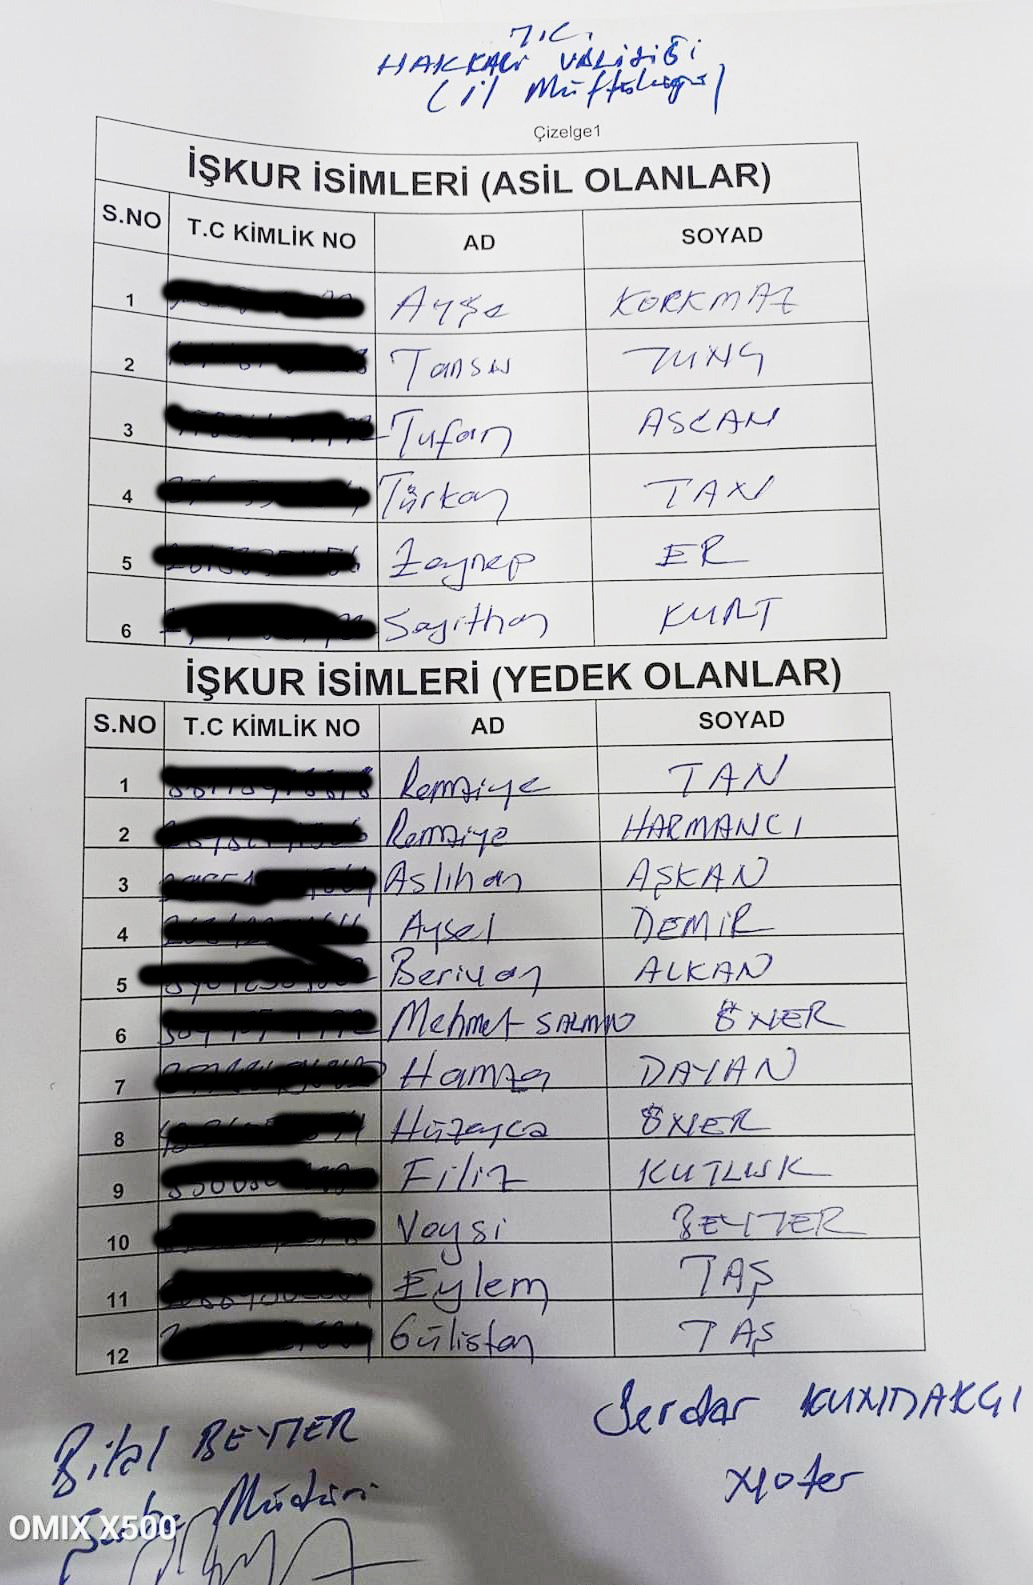 T.C.
HAKKARİ VALİLİĞİ
(İl Müftülüğü)
Çizelge1
İŞKUR İSİMLERİ (ASİL OLANLAR)
S.NO T.C KİMLİK NO AD SOYAD
1 Ayşe KORKMAZ
2 Tansu TUNÇ
3 Tufan ASLAN
4 Türkan TAN
5 Zeynep ER
6 Seyithan KURT
İŞKUR İSİMLERİ (YEDEK OLANLAR)
S.NO T.C KİMLİK NO AD SOYAD
1 Remziye TAN
2 Remziye HARMANCI
3 Aslıhan AŞKAN
4 Aysel DEMİR
5 Berivan ALKAN
6 Mehmet SALMAN ÖNER
7 Hamza DAYAN
8 ÖNER
9 Filiz KUTLUK
10 Veysi BEYTER
11 Eylem TAŞ
12 Gülistan TAŞ
Bilal BEYTER Serdar KUNDAKÇI
Şube Müdürü Noter
OMIX X500